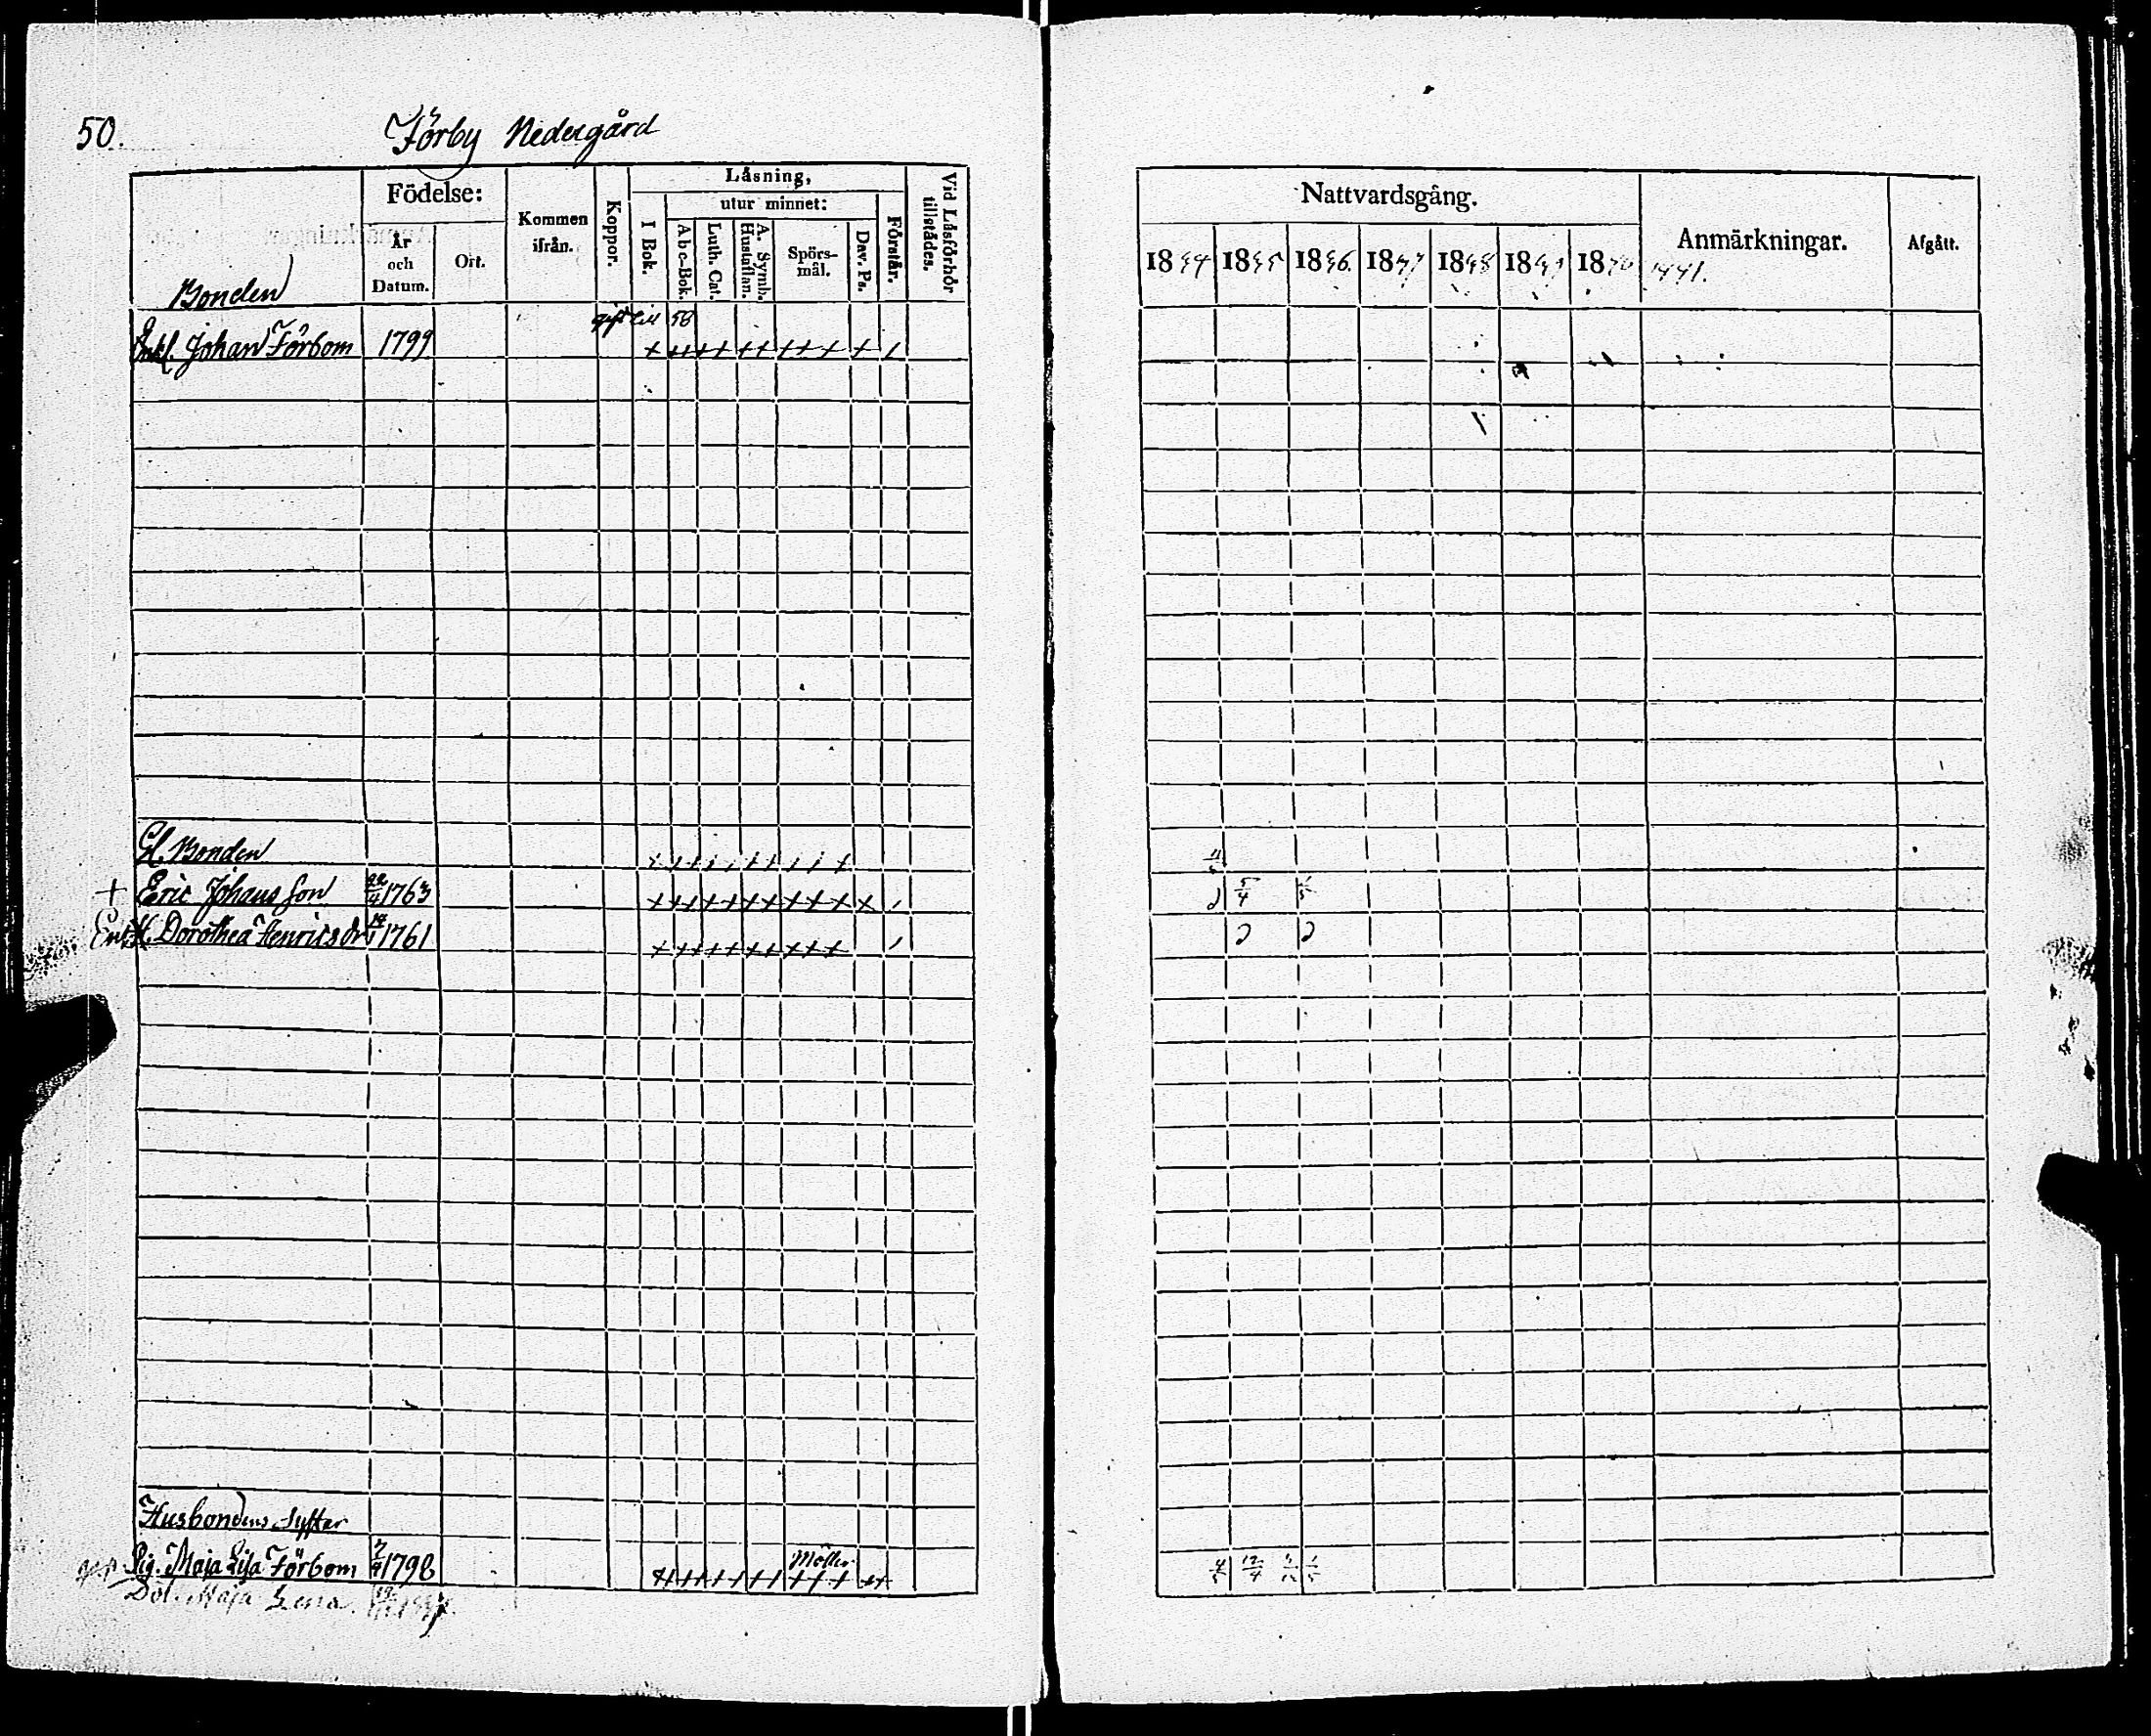 50. Förby Nedergård
Födelse:
År och Datum.
Ort.
Kommen ifrån.
Koppor.
Läsning,
I Bok.
utur minnet:
Abc-Bok.
Luth. Cat.
A. Symb. Hustaflan.
Spörs-mål.
Dav. Ps.
Förstår.
Vid Läsförhör tillstädes.
Bonden
gift till 58
Enkl. Johan Förbom 1799
Gl. Bonden
+ Eric Johansson 22/4 1763
Enk. H. Dorothea Henricsdr 1761
Husbondens Syster
Möller
Pig. Maja Lisa Förbom 1798
Dot. Maja Lena
Nattvardsgång.
1844 1845 1846. 1847 1848 1849 18
Anmärkningar.
Afgått.
5/4
2 2